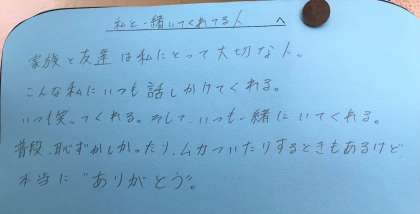 私と一緒いてくれてる人　へ
家族と友達は私にとって大切な人。
こんな私にいつも話しかけてくれる。
いつも笑ってくれる。そして、いつも一緒にいてくれる。
普段、恥ずかしかったり、ムカついたりするときもあるけど
本当に"ありがとう"。